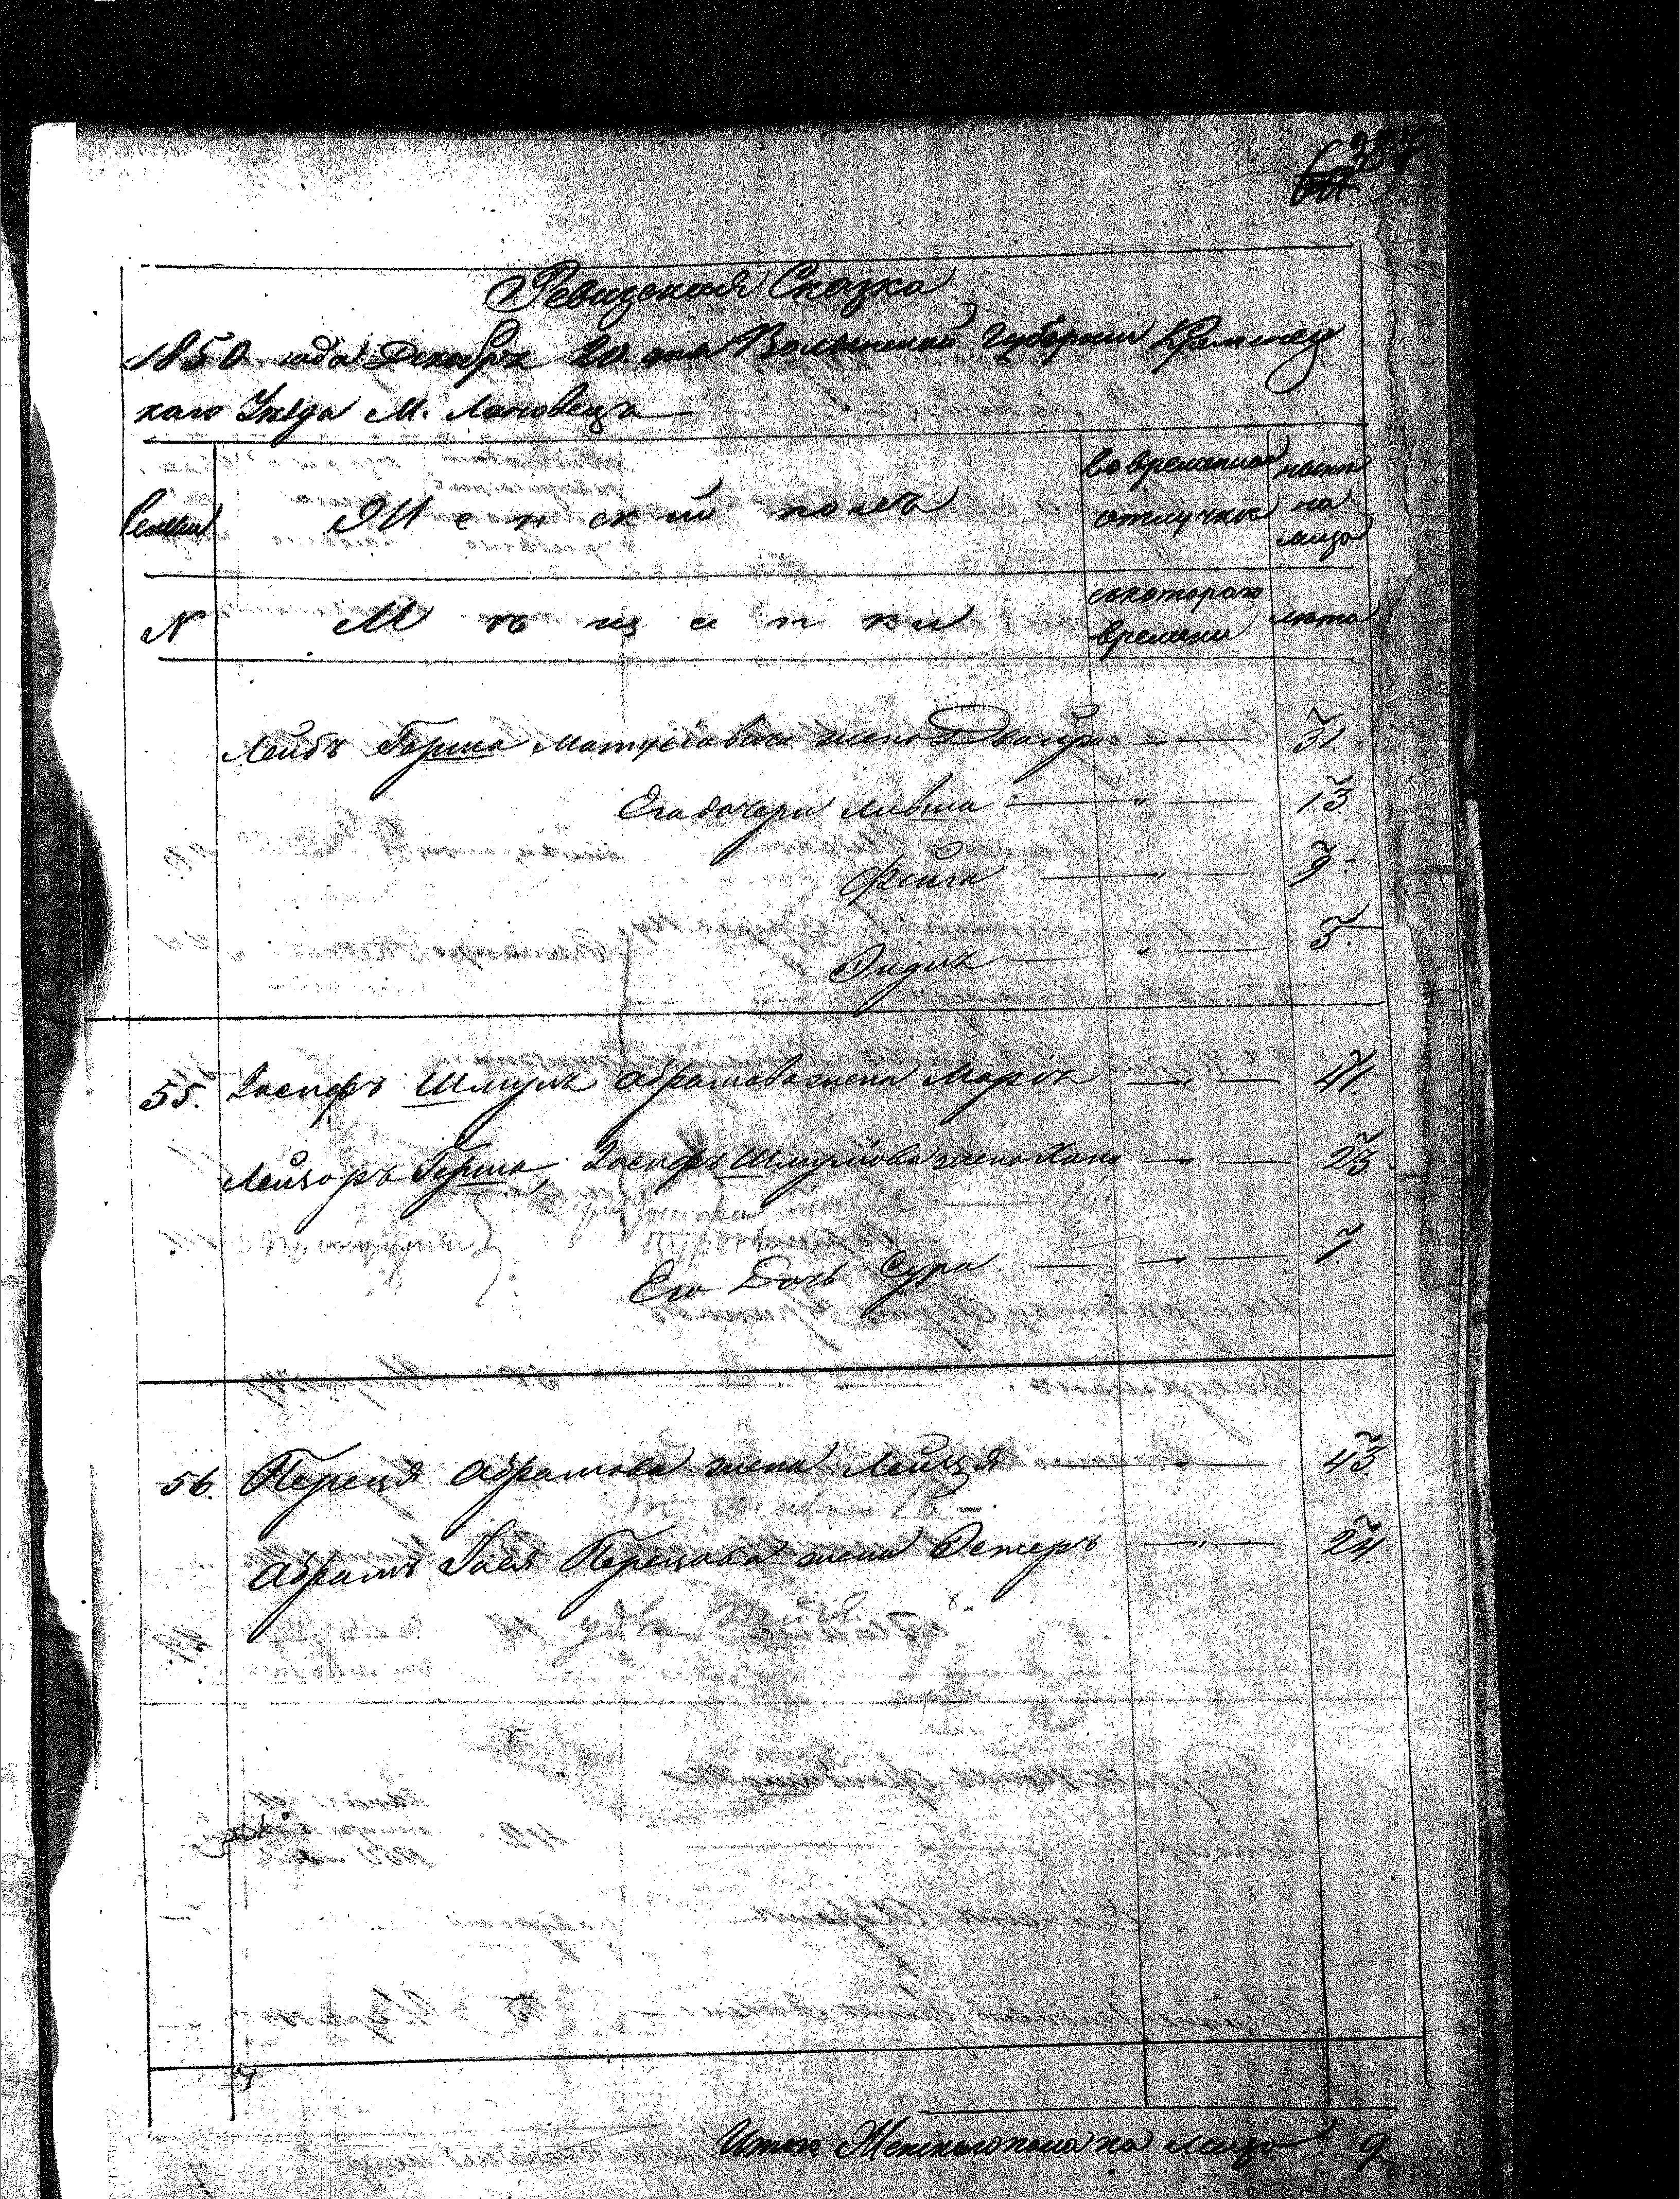 Ревизская Сказка
1850 года Декабря 20 дня Волынской Губернии Кременец
каго Уезда М. Лановецъ
Семьи
Женский полъ
Во временной отлучке
ныне на лицо
N
Мещанки
съ котораго времени
лета
Лейбъ Герша Матусовича жена Двойра — 31.
Его дочери Ливша — " — 13.
Фейга — " — 9.
— " — 5.
55. Иосифъ Шмуль Абрамова жена Марiя — " — 41.
Лейзоръ Герша, Иосифъ Шмулiова жена Хана — " — 23.
Его Дочь Сура — " — 7.
56. Переця Абрамова жена Лейця — " — 43.
Абрамъ Гдаля Перецова жена Эстеръ — " — 24.
Итого Женскаго пола на лицо 9